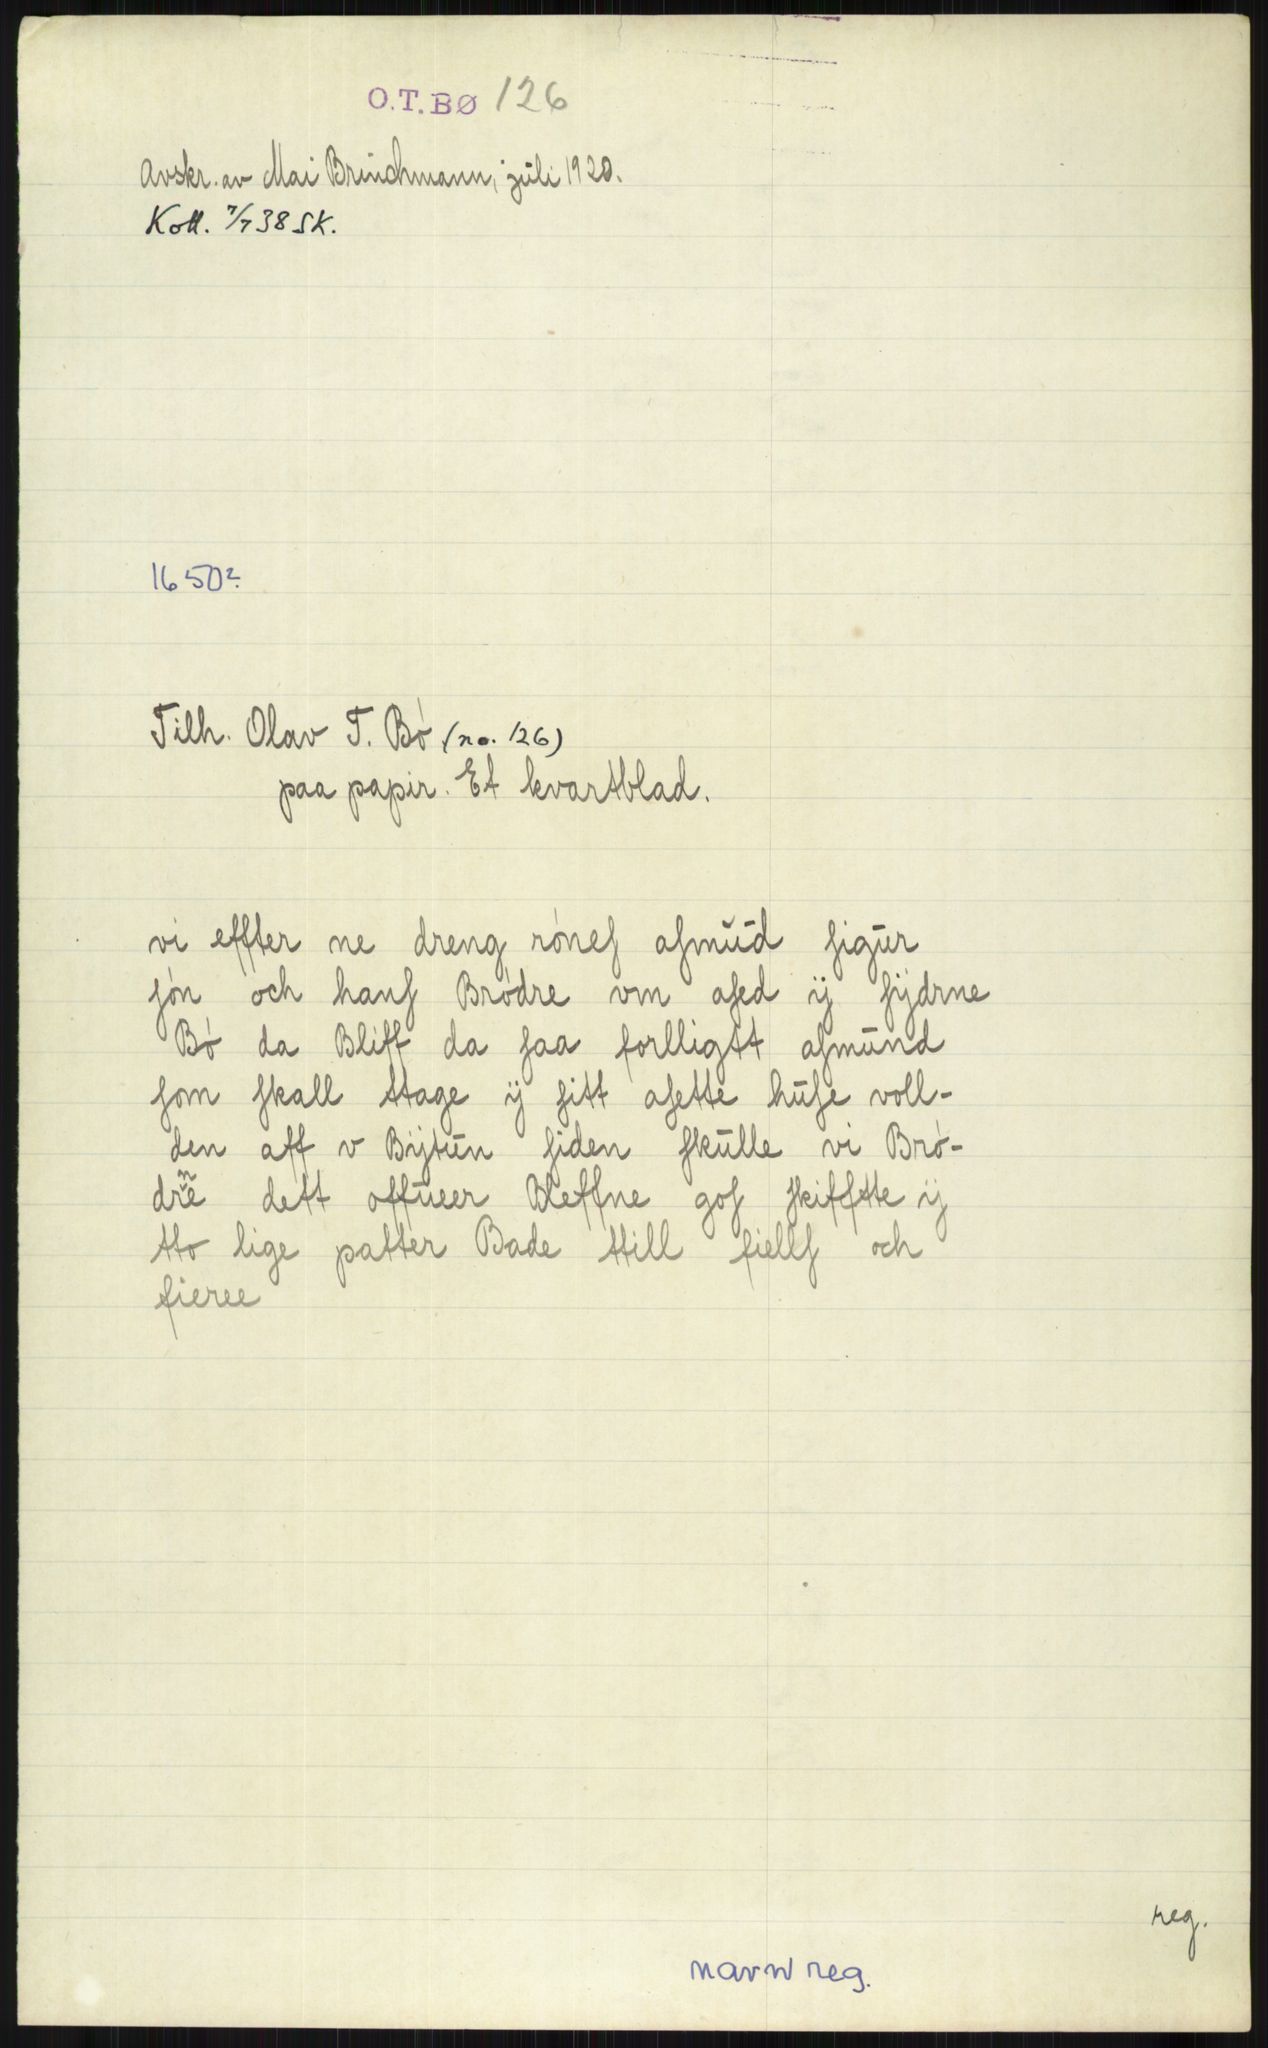 O.T.BØ 126
Avskr. av Mai Brinchmann, juli 1920.
Koll. 7/7 38 SK.
1650?
Tilh. Olav T. Bó (no. 126)
paa papir. Et kvartblad.
vi effter ne dreng rónes asmud sigur
són och hans Brödre vm ased ÿ sÿdrne
Bó da Bliff da saa forlligtt asmund
som skall ttage ÿ sitt asette huse voll-
den aff v Bÿtun siden skulle vi Bró-
dre dett offueer Bleffne gos skifftte ÿ
tto lige patter Bade ttill fiells och
fieree
reg.
navn reg.